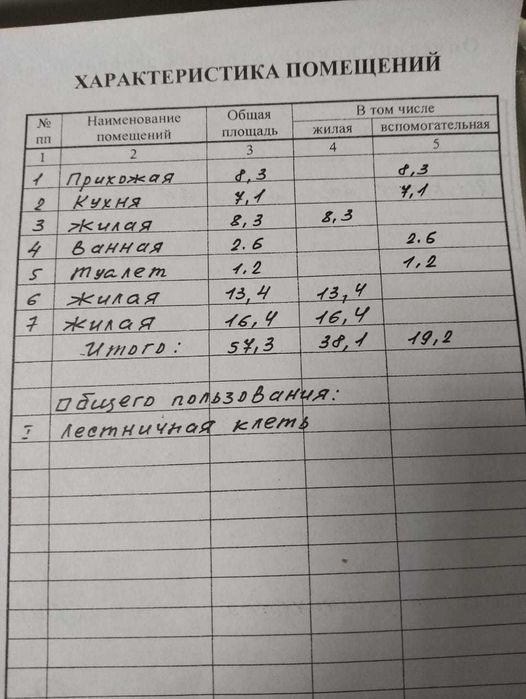 ХАРАКТЕРИСТИКА ПОМЕЩЕНИЙ
№ пп Наименование помещений Общая площадь В том числе
жилая вспомогательная
1 2 3 4 5
1 Прихожая 8,3 8,3
2 Кухня 7,1 7,1
3 Жилая 8,3 8,3
4 Ванная 2.6 2.6
5 Туалет 1.2 1,2
6 Жилая 13,4 13,4
7 Жилая 16,4 16,4
Итого: 57,3 38,1 19,2
Общего пользования:
I Лестничная клеть